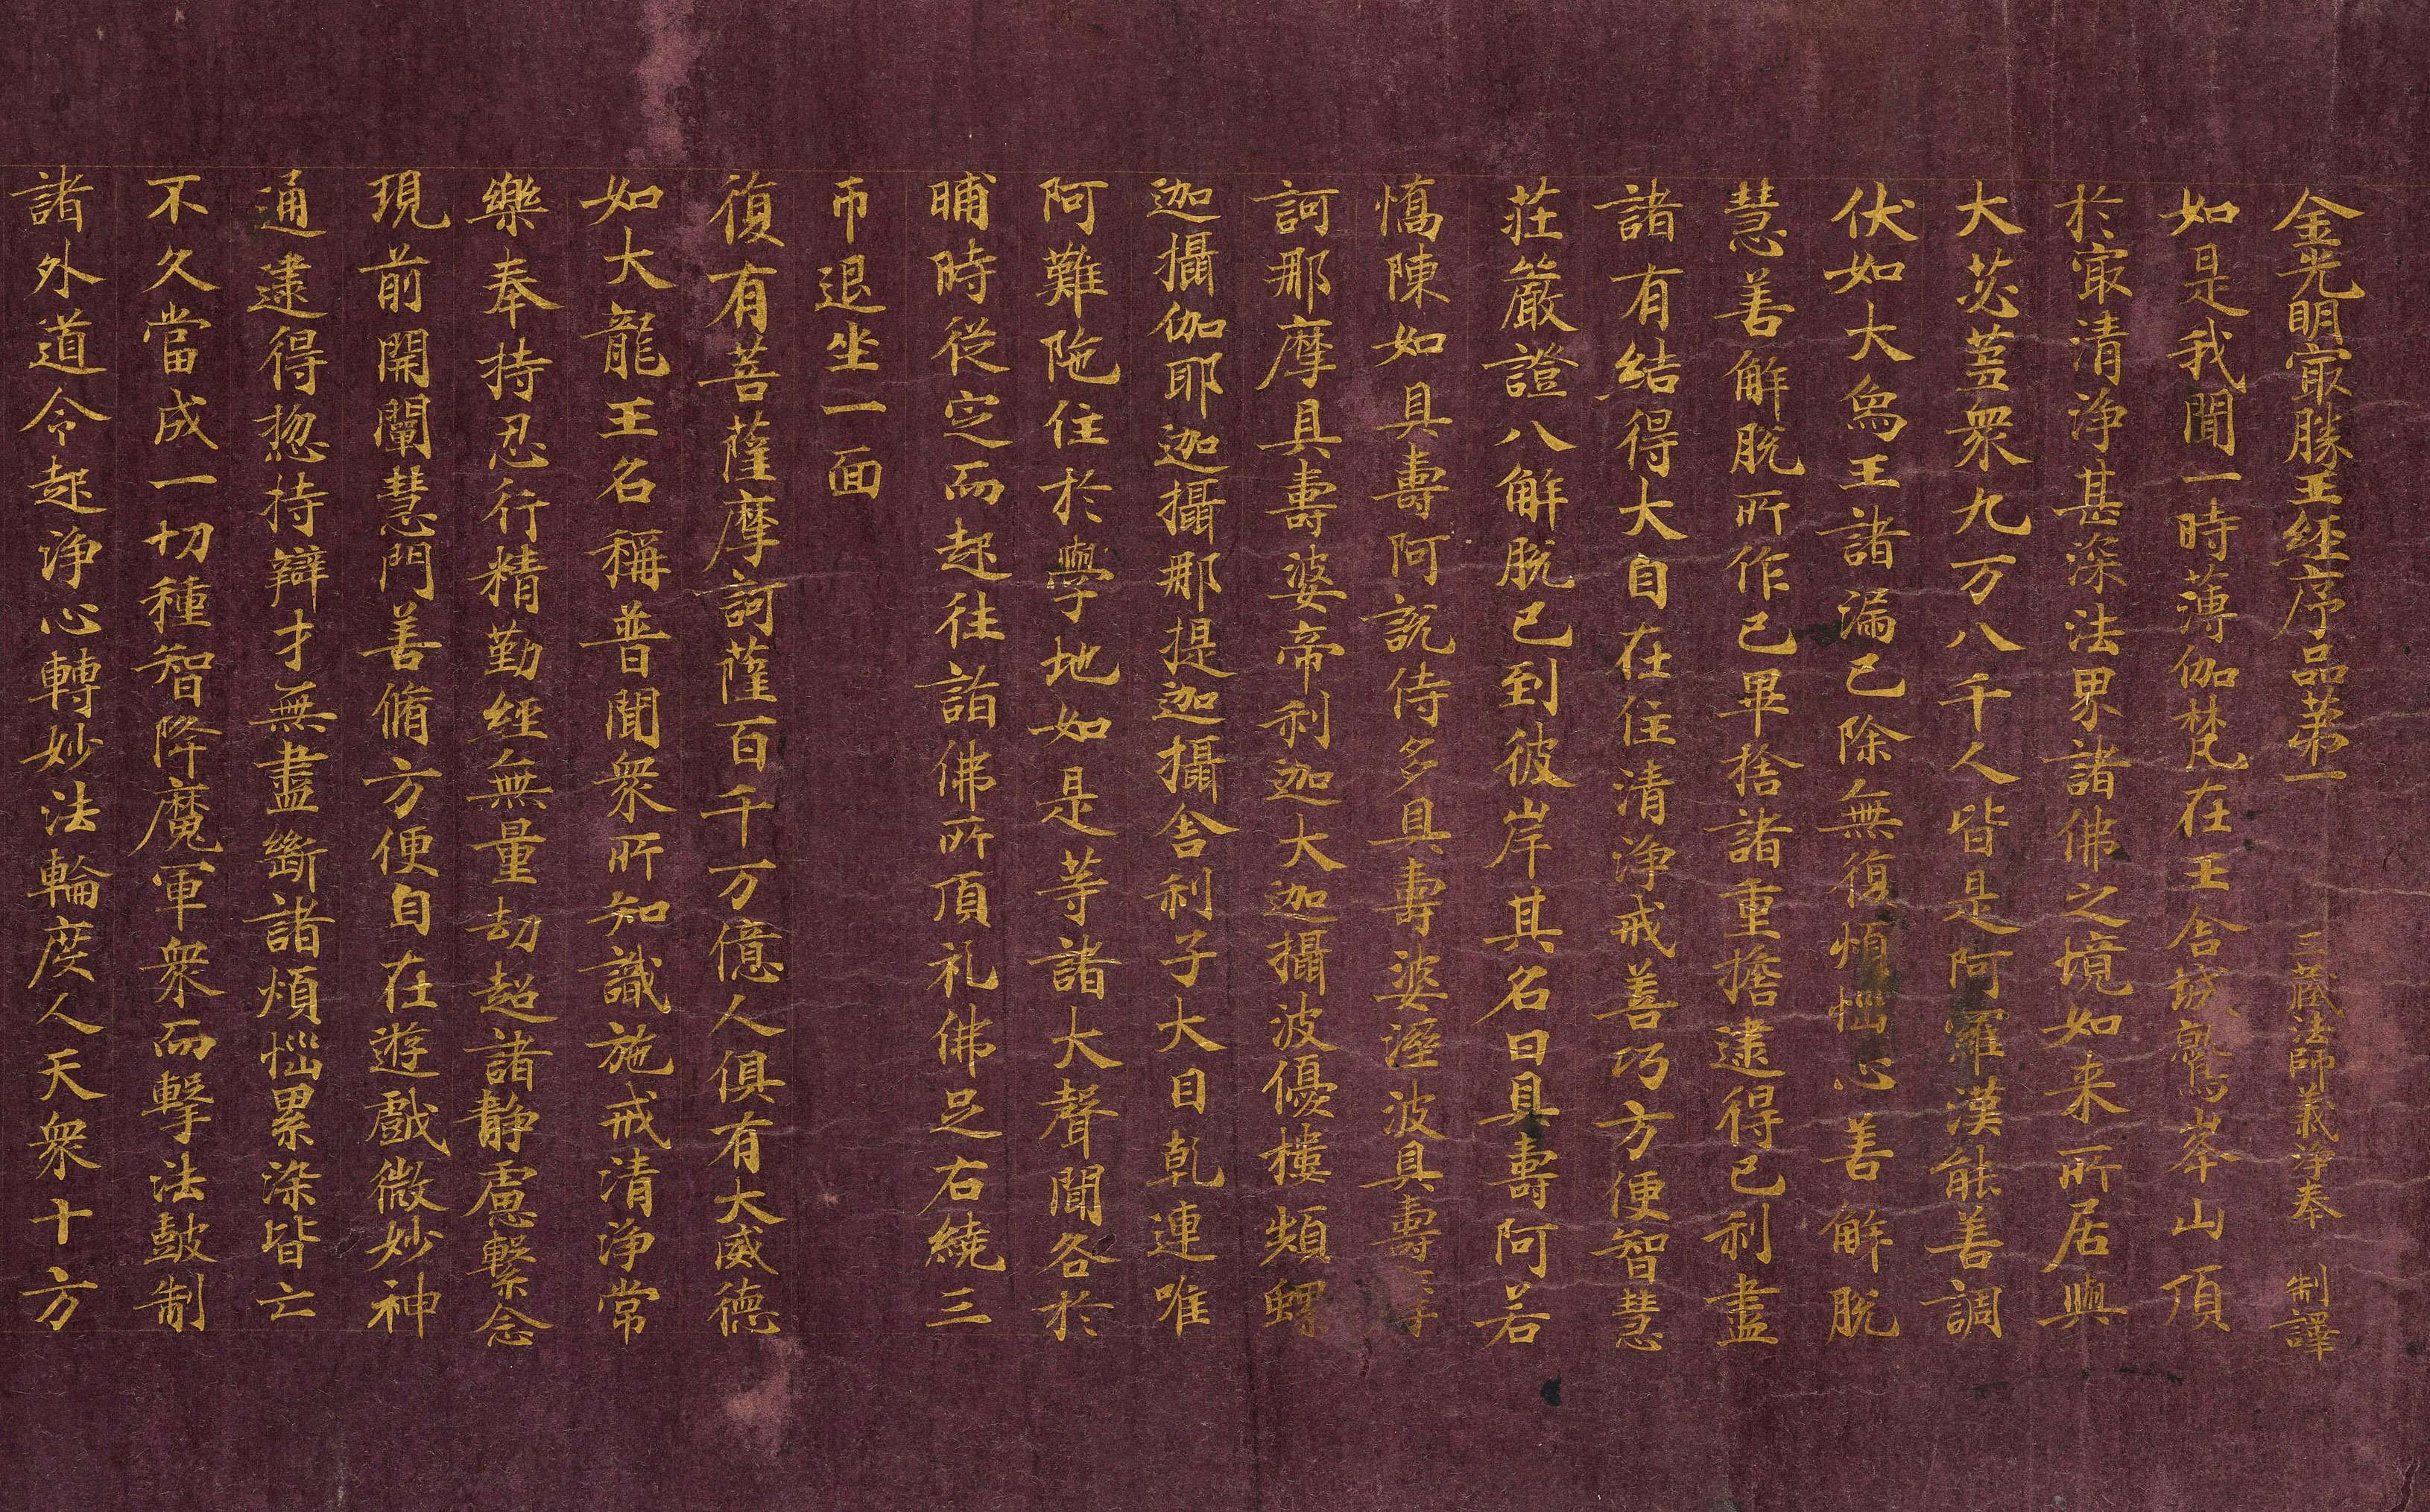 金光明寂勝王經序品第一 三藏法師義淨奉 制譯
如是我聞一時薄伽梵在王舍城鷲峯山頂
於寂清淨甚深法界諸佛之境如来所居與
大苾蒭衆九万八千人皆是阿羅漢能善調
伏如大象王諸漏已除無復煩惱心善解脫
慧善解脫所作已畢捨諸重擔逮得已利盡
諸有結得大自在住清淨戒善巧方便智慧
莊嚴證八解脫已到彼岸其名曰具壽阿若
憍陳如具壽阿說侍多具壽婆溼波具壽摩
訶那摩具壽婆帝利迦大迦攝波優樓頻螺
迦攝伽耶迦攝那提迦攝舍利子大目乾連唯
阿難陁住於學地如是等諸大聲聞各於
晡時從定而起往詣佛所頂礼佛足右繞三
帀退坐一面
復有菩薩摩訶薩百千万億人俱有大威德
如大龍王名稱普聞衆所知識施戒清淨常
樂奉持忍行精勤經無量劫超諸静慮繫念
現前開闡慧門善脩方便自在遊戲微妙神
通逮得惣持辯才無盡斷諸煩惱累染皆亡
不久當成一切種智降魔軍衆而擊法鼓制
諸外道令起淨心轉妙法輪度人天衆十方